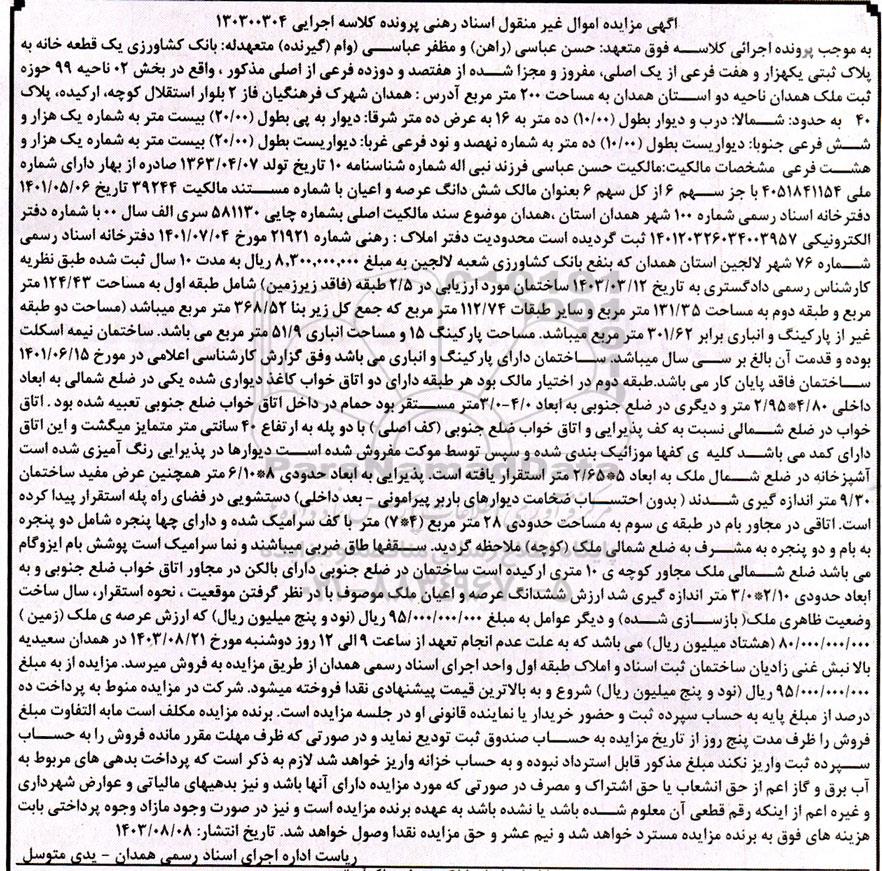 آگهی مزایده اموال غیر منقول اسناد رهنی پرونده کلاسه اجرایی ۱۳۰۳۰۰۳۰۴
به موجب پرونده اجرائی کلاسه فوق متعهد: حسن عباسی (راهن) و مظفر عباسی (وام (گیرنده) متعهدله: بانک کشاورزی یک قطعه خانه به
پلاک ثبتی یکهزار و هفت فرعی از یک اصلی، مفروز و مجزا شده از هفتصد و دوازده فرعی از اصلی مذکور ، واقع در بخش ۰۲ ناحیه ۹۹ حوزه
ثبت ملک همدان ناحیه دو استان همدان به مساحت ۲۰۰ متر مربع آدرس : همدان شهرک فرهنگیان فاز ۲ بلوار استقلال کوچه، ارکیده، پلاک
۴۰ به حدود: شمالا: درب و دیوار بطول (۱۰/۰۰) ده متر به ۱۶ به عرض ده متر شرقا: دیوار به پی بطول (۲۰/۰۰) بیست متر به شماره یک هزار و
شش فرعی جنوبا: دیواریست بطول (۱۰/۰۰) ده متر به شماره نهصد و نود فرعی غربا: دیواریست بطول (۲۰/۰۰) بیست متر به شماره یک هزار و
هشت فرعی مشخصات مالکیت:مالکیت حسن عباسی فرزند نبی اله شماره شناسنامه ۱۰ تاریخ تولد ۱۳۶۳/۰۴/۰۷ صادره از بهار دارای شماره
ملی ۴۰۵۱۸۴۱۱۵۴ با جز سهم ۶ از کل سهم ۶ بعنوان مالک شش دانگ عرصه و اعیان با شماره مستند مالکیت ۳۹۲۴۴ تاریخ ۱۴۰۱/۰۵/۰۶
دفترخانه اسناد رسمی شماره ۱۰۰ شهر همدان استان ،همدان موضوع سند مالکیت اصلی بشماره چاپی ۵۸۱۱۳۰ سری الف سال ۰۰ با شماره دفتر
الکترونیکی ۱۴۰۱۲۰۳۲۶۰۳۴۰۰۳۹۵۷ ثبت گردیده است محدودیت دفتر املاک : رهنی شماره ۲۱۹۲۱ مورخ ۱۴۰۱/۰۷/۰۴ دفترخانه اسناد رسمی
شماره ۷۶ شهر لالجین استان همدان که بنفع بانک کشاورزی شعبه لالجین به مبلغ ۸,۳۰۰,۰۰۰,۰۰۰ ریال به مدت ۱۰ سال ثبت شده طبق نظریه
کارشناس رسمی دادگستری به تاریخ ۱۴۰۳/۰۳/۱۲ ساختمان مورد ارزیابی در ۲/۵ طبقه (فاقد زیرزمین) شامل طبقه اول به مساحت ۱۲۴/۴۳ متر
مربع و طبقه دوم به مساحت ۱۳۱/۳۵ متر مربع و سایر طبقات ۱۱۲/۷۴ متر مربع که جمع کل زیر بنا ۳۶۸/۵۲ متر مربع میباشد (مساحت دو طبقه
غیر از پارکینگ و انباری برابر ۳۰۱/۶۲ متر مربع میباشد. مساحت پارکینگ ۱۵ و مساحت انباری ۵۱/۹ متر مربع می باشد. ساختمان نیمه اسکلت
بوده و قدمت آن بالغ بر سی سال میباشد. ساختمان دارای پارکینگ و انباری می باشد وفق گزارش کارشناسی اعلامی در مورخ ۱۴۰۱/۰۶/۱۵
ساختمان فاقد پایان کار می باشد.طبقه دوم در اختیار مالک بود هر طبقه دارای دو اتاق خواب کاغذ دیواری شده یکی در ضلع شمالی به ابعاد
داخلی ۴/۸۰*۲/۹۵ متر و دیگری در ضلع جنوبی به ابعاد ۴/۰-۳/۰متر مستقر بود حمام در داخل اتاق خواب ضلع جنوبی تعبیه شده بود . اتاق
خواب در ضلع شمالی نسبت به کف پذیرایی و اتاق خواب ضلع جنوبی (کف اصلی ) با دو پله به ارتفاع ۴۰ سانتی متر متمایز میگشت و این اتاق
دارای کمد می باشد کلیه ی کفها موزائیک بندی شده و سپس توسط موکت مفروش شده است دیوارها در پذیرایی رنگ آمیزی شده است
آشپزخانه در ضلع شمال ملک به ابعاد ۵*۲/۶۵ متر استقرار یافته است. پذیرایی به ابعاد حدودی ۸*۶/۱۰ متر همچنین عرض مفید ساختمان
۹/۳۰ متر اندازه گیری شدند ( بدون احتساب ضخامت دیوارهای باربر پیرامونی - بعد داخلی) دستشویی در فضای راه پله استقرار پیدا کرده
است. اتاقی در مجاور بام در طبقه ی سوم به مساحت حدودی ۲۸ متر مربع (۴*۷) متر با کف سرامیک شده و دارای چها پنجره شامل دو پنجره
به بام و دو پنجره به مشرف به ضلع شمالی ملک (کوچه) ملاحظه گردید. سقفها طاق ضربی میباشند و نما سرامیک است پوشش بام ایزوگام
می باشد ضلع شمالی ملک مجاور کوچه ی ۱۰ متری ارکیده است ساختمان در ضلع جنوبی دارای بالکن در مجاور اتاق خواب ضلع جنوبی و به
ابعاد حدودی ۲/۱۰*۳/۰ متر اندازه گیری شد ارزش ششدانگ عرصه و اعیان ملک موصوف با در نظر گرفتن موقعیت ، نحوه استقرار، سال ساخت
وضعیت ظاهری ملک( بازسازی شده) و دیگر عوامل به مبلغ ۹۵/۰۰۰/۰۰۰/۰۰۰ ریال (نود و پنج میلیون ریال) که ارزش عرصه ی ملک (زمین )
۸۰/۰۰۰/۰۰۰/۰۰۰ (هشتاد میلیون ریال) می باشد که به علت عدم انجام تعهد از ساعت ۹ الی ۱۲ روز دوشنبه مورخ ۱۴۰۳/۰۸/۲۱ در همدان سعیدیه
بالا نبش غنی زادیان ساختمان ثبت اسناد و املاک طبقه اول واحد اجرای اسناد رسمی همدان از طریق مزایده به فروش میرسد. مزایده از به مبلغ
۹۵/۰۰۰/۰۰۰/۰۰۰ ریال (نود و پنج میلیون ریال) شروع و به بالاترین قیمت پیشنهادی نقدا فروخته میشود. شرکت در مزایده منوط به پرداخت ده
درصد از مبلغ پایه به حساب سپرده ثبت و حضور خریدار یا نماینده قانونی او در جلسه مزایده است. برنده مزایده مکلف است مابه التفاوت مبلغ
فروش را ظرف مدت پنج روز از تاریخ مزایده به حساب صندوق ثبت تودیع نماید و در صورتی که ظرف مهلت مقرر مانده فروش را به حساب
سپرده ثبت واریز نکند مبلغ مذکور قابل استرداد نبوده و به حساب خزانه واریز خواهد شد لازم به ذکر است که پرداخت بدهی های مربوط به
آب برق و گاز اعم از حق انشعاب یا حق اشتراک و مصرف در صورتی که مورد مزایده دارای آنها باشد و نیز بدهیهای مالیاتی و عوارض شهرداری
و غیره اعم از اینکه رقم قطعی آن معلوم شده باشد یا نشده باشد به عهده برنده مزایده است و نیز در صورت وجود مازاد وجوه پرداختی بابت
هزینه های فوق به برنده مزایده مسترد خواهد شد و نیم عشر و حق مزایده نقدا وصول خواهد شد. تاریخ انتشار: ۱۴۰۳/۰۸/۰۸
ریاست اداره اجرای اسناد رسمی همدان - یدی متوسل
ParsNamadData